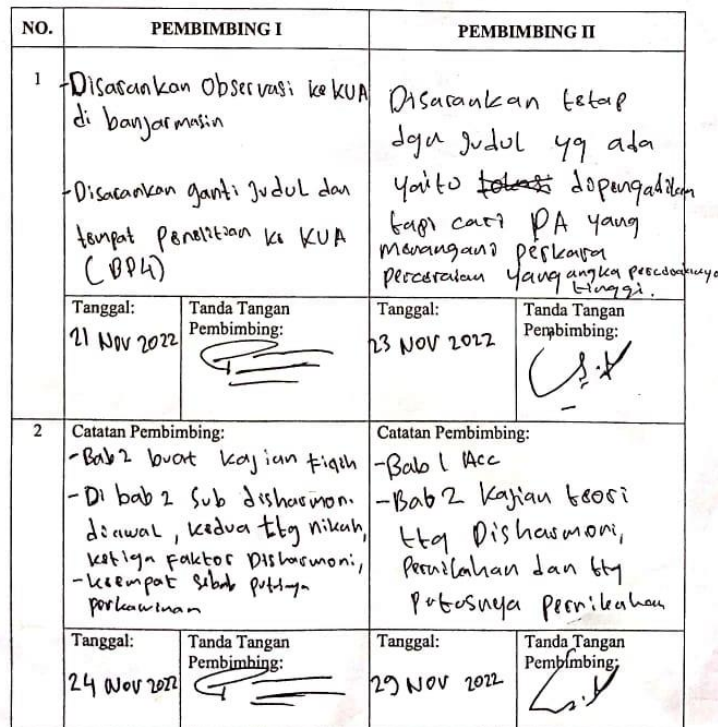 NO. PEMBIMBING I PEMBIMBING II
1
-Disarankan Observasi ke KUA
di banjarmasin
-Disarankan ganti Judul dan
tempat Penelitian ke KUA
(BP4)
Disarankan tetap
dgn Judul yg ada
yaitu dipengadilan
tapi cari PA yang
menangani perkara
perceraian yang angka perceraiannya
tinggi.
Tanggal:
21 Nov 2022
Tanda Tangan
Pembimbing:
Tanggal:
23 NOV 2022
Tanda Tangan
Pembimbing:
2
Catatan Pembimbing:
-Bab 2 buat kajian fiqih
-Di bab 2 Sub disharmoni
diawal, kedua ttg nikah,
ketiga faktor Disharmoni,
-keempat sebab putusnya
perkawinan
Catatan Pembimbing:
-Bab 1 Acc
-Bab 2 Kajian teori
ttg Disharmoni,
Pernikahan dan ttg
Putusnya pernikahan
Tanggal:
24 Nov 2022
Tanda Tangan
Pembimbing:
Tanggal:
29 NOV 2022
Tanda Tangan
Pembimbing: